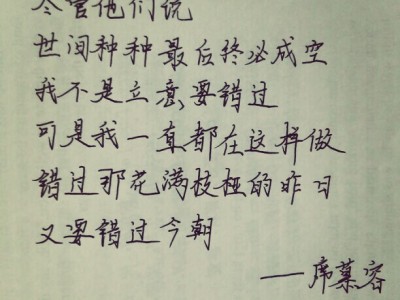 尽管他们说
世间种种最后终必成空
我不是立意要错过
可是我一直都在这样做
错过那花满枝桠的昨日
又要错过今朝
——席慕容